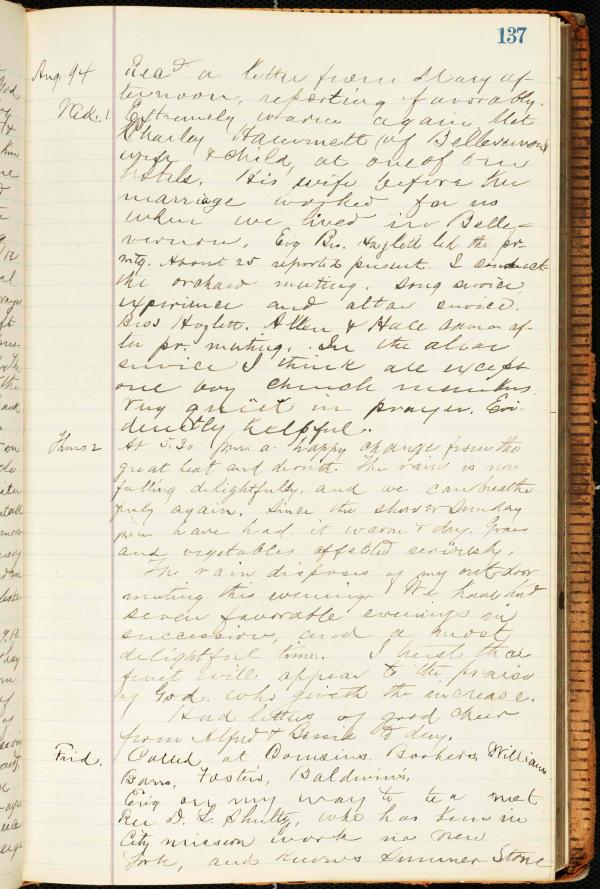 137
Aug. 94 Recd a letter from Mary af-
ternoon, reporting favorably.
Wed. 1 Extremely warm again. Met
Charley Hammett (of Bellevernon)
wife & child, at one of the
hotels. His wife before the
marriage worked for us
when we lived in Belle-
vernon. Evg Bro. Hazlett led the pr.
mtg. About 25 reported present. I conduct
the orchard meeting. Song service,
experience and altar service.
Bros Hazlett, Allen & Hall af-
ter pr. meeting. In the altar
service I think all except
one boy church members.
Very quiet in prayer. Evi-
dently helpful.
Thurs 2 At 5.30 pm a happy change from the
great heat and drouth. The rain is now
falling delightfully, and we can breathe
freely again. Since the shower Sunday
have had it warm & dry. Grass
and vegetables affected seriously.
The rain disposes of my outdoor
meeting this evening. We have had
seven favorable evenings in
succession, and a most
delightful time. I trust that
fruit will appear to the praise
of God who giveth the increase.
Had letters of good cheer
from Alfred & Bessie to day.
Frid. Called at Cousins, Bookers, Williams
Barrs, Fosters, Baldwins.
Evg on my way to tea met
Rev D. L. Shultz, who has been in
City mission work in New
York, and knows Sumner Stone